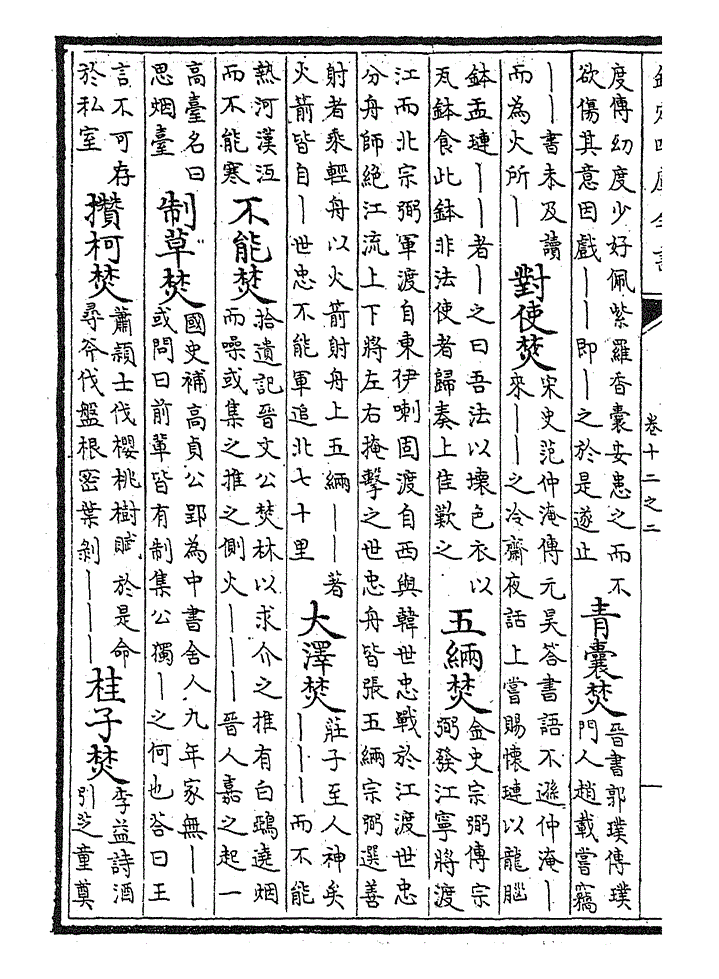 欽定四庫全書
卷十二之二
度傳幼度少好佩紫羅香囊安患之而不
欲傷其意因戲——即—之於是遂止
青囊焚
晉書郭璞傳璞
門人趙載嘗竊
——書未及讀
而為火所—
對使焚
宋史范仲淹傳元昊答書語不遜仲淹—
來——之冷齋夜話上嘗賜懷璉以龍腦
鉢盂璉——者—之曰吾法以壞色衣以
瓦鉢食此鉢非法使者歸奏上佳歎之
五緉焚
金史宗弼傳宗
弼發江寧將渡
江而北宗弼軍渡自東伊喇固渡自西與韓世忠戰於江渡世忠
分舟師絕江流上下將左右掩擊之世忠舟皆張五緉宗弼選善
射者乘輕舟以火箭射舟上五緉——著
火箭皆自—世忠不能軍追北七十里
大澤焚
莊子至人神矣
———而不能
熱河漢沍
而不能寒
不能焚
拾遺記晉文公焚林以求介之推有白鵶遶烟
而噪或集之推之側火———晉人嘉之起一
高臺名曰
思烟臺
制草焚
國史補高貞公郢為中書舍人九年家無——
或問曰前輩皆有制集公獨—之何也荅曰王
言不可存
於私室
攢柯焚
蕭頴士伐櫻桃樹賦 於是命
尋斧伐盤根密葉剝———
桂子焚
李益詩酒
引芝童奠